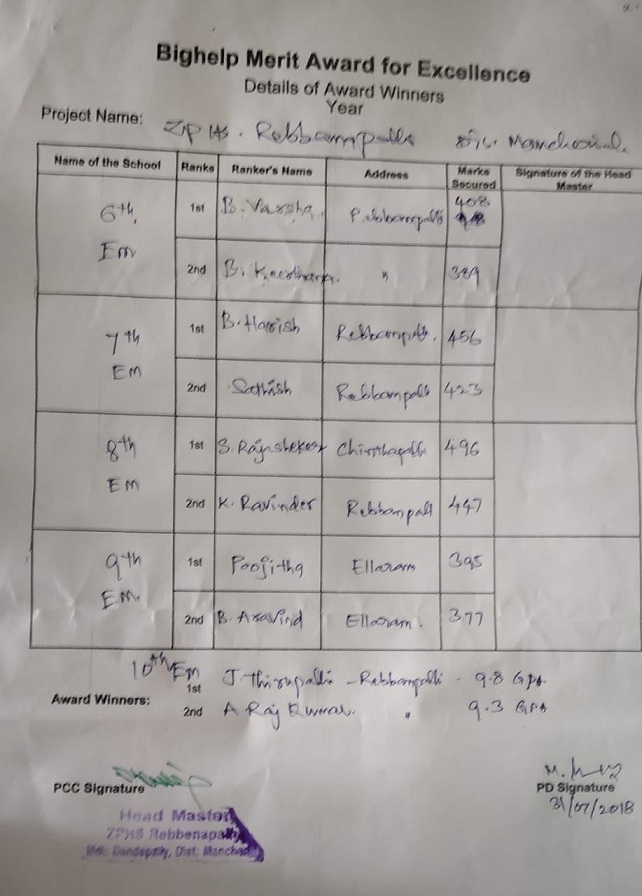 Bighelp Merit Award for Excellence
Details of Award Winners
Year
Project Name: ZPHS. Rebbampalli
Name of the School Ranks Ranker's Name Address Marks Secured Signature of the Head Master
6th EM 1st B. Varsha 408
2nd B. Keerthana " 389
7th EM 1st B. Harish Rebbampalli. 456
2nd Sathish Rebbampalli 423
8th EM 1st S. Rajasheker Chinthapalli 496
2nd K. Ravinder Rebbampalli 447
9th EM. 1st Poojitha Ellaram 395
2nd B. Aravind Ellaram. 377
10th EM
Award Winners: 1st J. Thirupathi - Rebbampalli - 9.8 GPA
2nd A Raj Kumar. " 9.3 GPA
PCC Signature
PD Signature
31/07/2018
Head Master
ZPHS Rebbenapally
Mdl: Dandepally, Dist. Mancherial